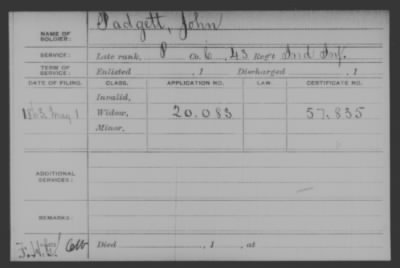 NAME OF SOLDIER: Padgett, John
SERVICE: Late rank, P Co. G, 43 Reg't Ind Inf.
TERM OF SERVICE: Enlisted , 1 Discharged , 1
DATE OF FILING. CLASS. APPLICATION NO. LAW. CERTIFICATE NO.
Invalid,
1863 May 1 Widow, 20.083 57.835
Minor,
ADDITIONAL SERVICES:
REMARKS:
Died , 1 , at